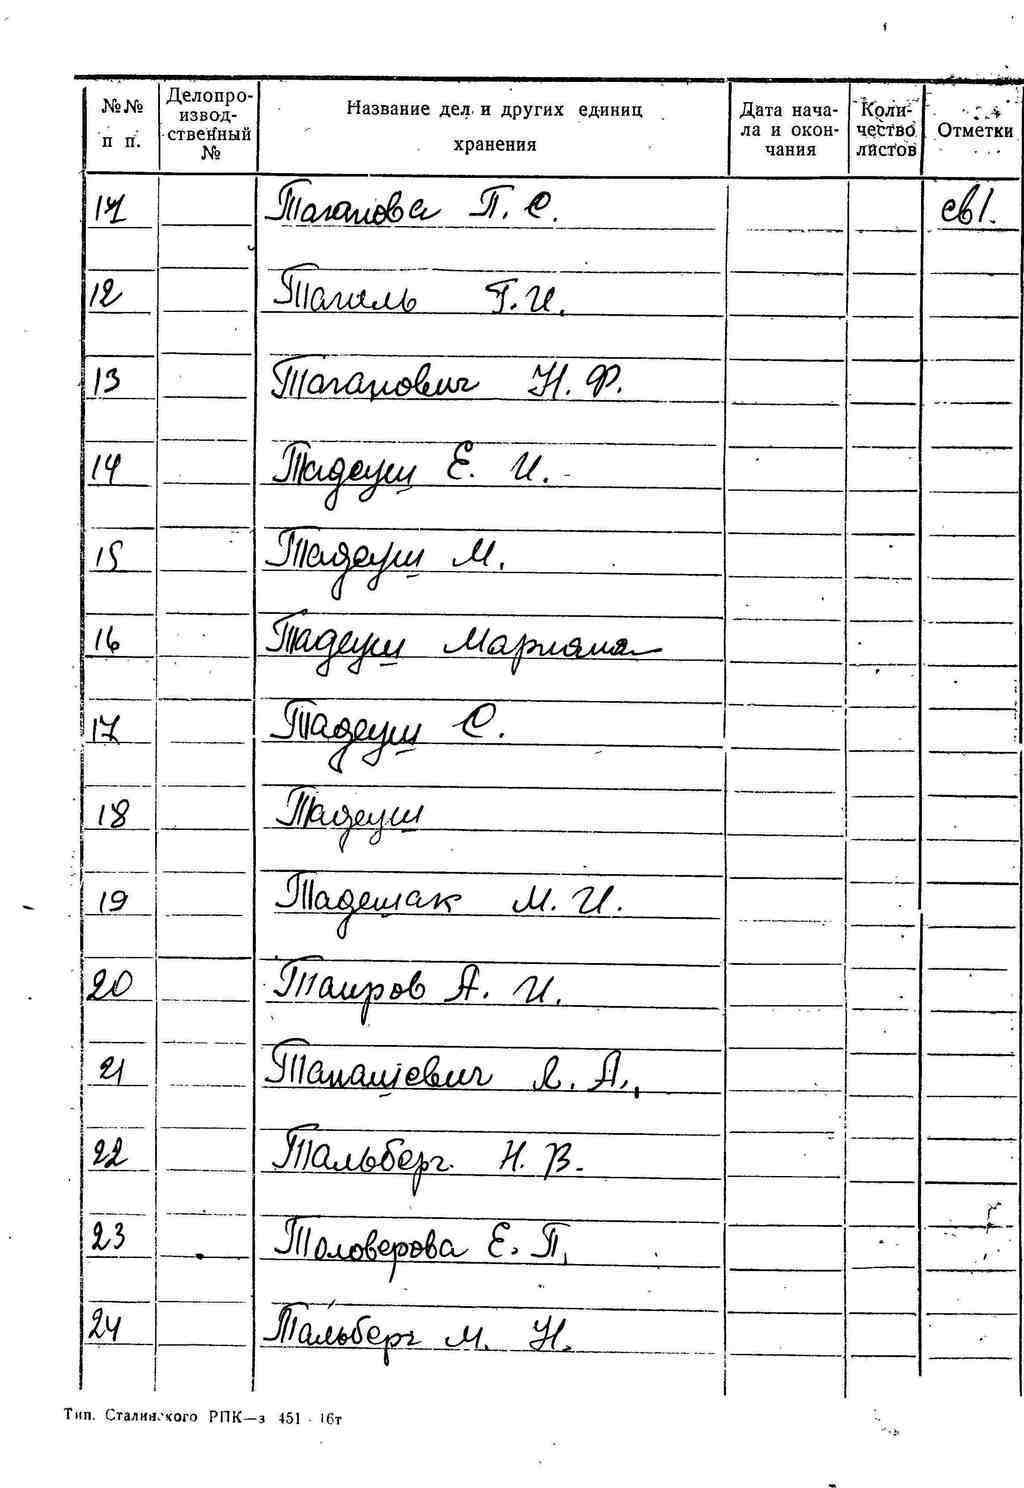 №№ п п. Делопроизводственный № Название дел и других единиц хранения Дата начала и окончания Количество листов Отметки
Таганова П. С. св1.
12 Тагиль Г. И.
13 Таганович Н. Ф.
14 Тадеуш Е. И.
15 Тадеуш М.
16 Тадеуш Мариана
17 Тадеуш С.
18 Тадеуш
19 Тадешак М. И.
20 Таиров А. И.
21 Я. А.
22 Тальберг Н. В.
23 Таловерова Е. П.
24 Тальберг М. Н.
Тип. Сталинского РПК—з 451 - 16т